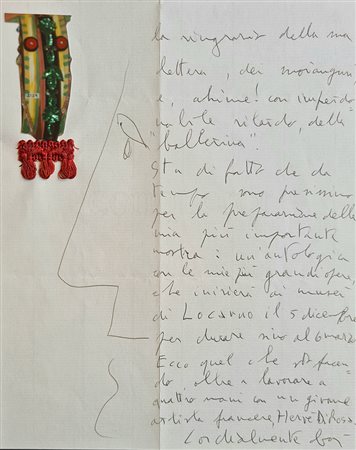 la ringrazio della sua
lettera, dei
e, ahimè! con imperdo
nabile ritardo, della
"ballerina".
Sta di fatto che da
tempo sono
per la preparazione della
mia più importante
mostra: un'antologia
con le mie più grandi opere,
che inizierà ai musei
di Locarno il 5 dicembre
per durare sino al 6 marzo
Ecco quel che sto facen
do, oltre a lavorare a
quattro mani con un giovane
artista francese, Hervé Di Rosa.
Cordialmente